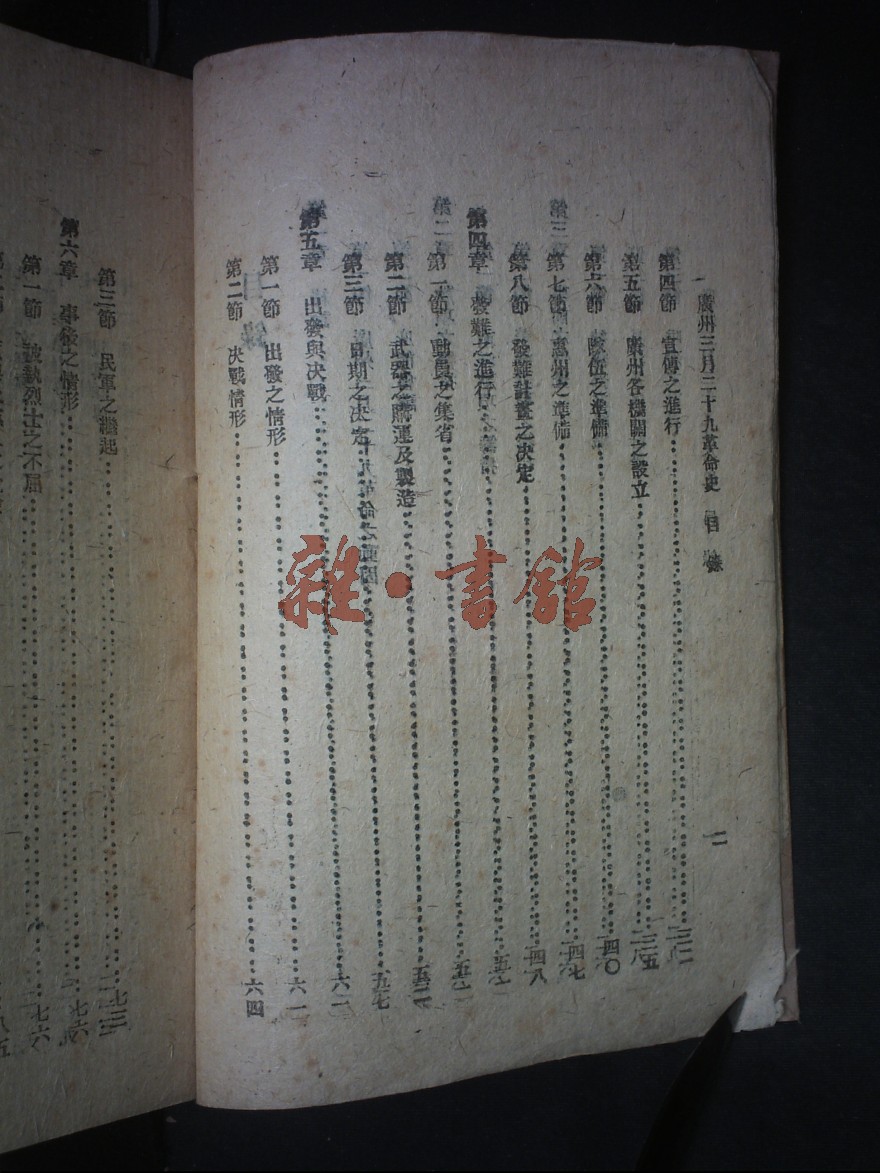 廣州三月二十九革命史 目錄 二
第四節 宣傳之進行
第五節 廣州各機關之設立
第六節 隊伍之準備
第七節 惠州之準備
第八節 發難計畫之決定
第四章 發難之進行
第一節 動員之集省
第二節 武器之購運及製造
第三節 日期之決定
第五章 出發與決戰
第一節 出發之情形
第二節 決戰情形⋯⋯六四
第三節 民軍之繼起
第六章 事後之情形⋯⋯七六
第一節 被執烈士之不屈⋯⋯七六
雜·書館